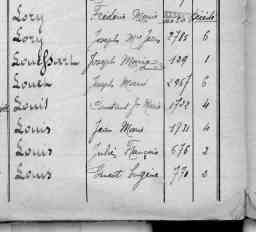 Lory Frédéric Marie
Lory Joseph Mie Jean 2785 6
Joseph Marie 129 1
Louet Joseph Marie 2967 6
Louil Jn Marie 1722 4
Louis Jean Marie 1921 4
Louis Julien François 676 2
Louis Ernest Eugène 770 2